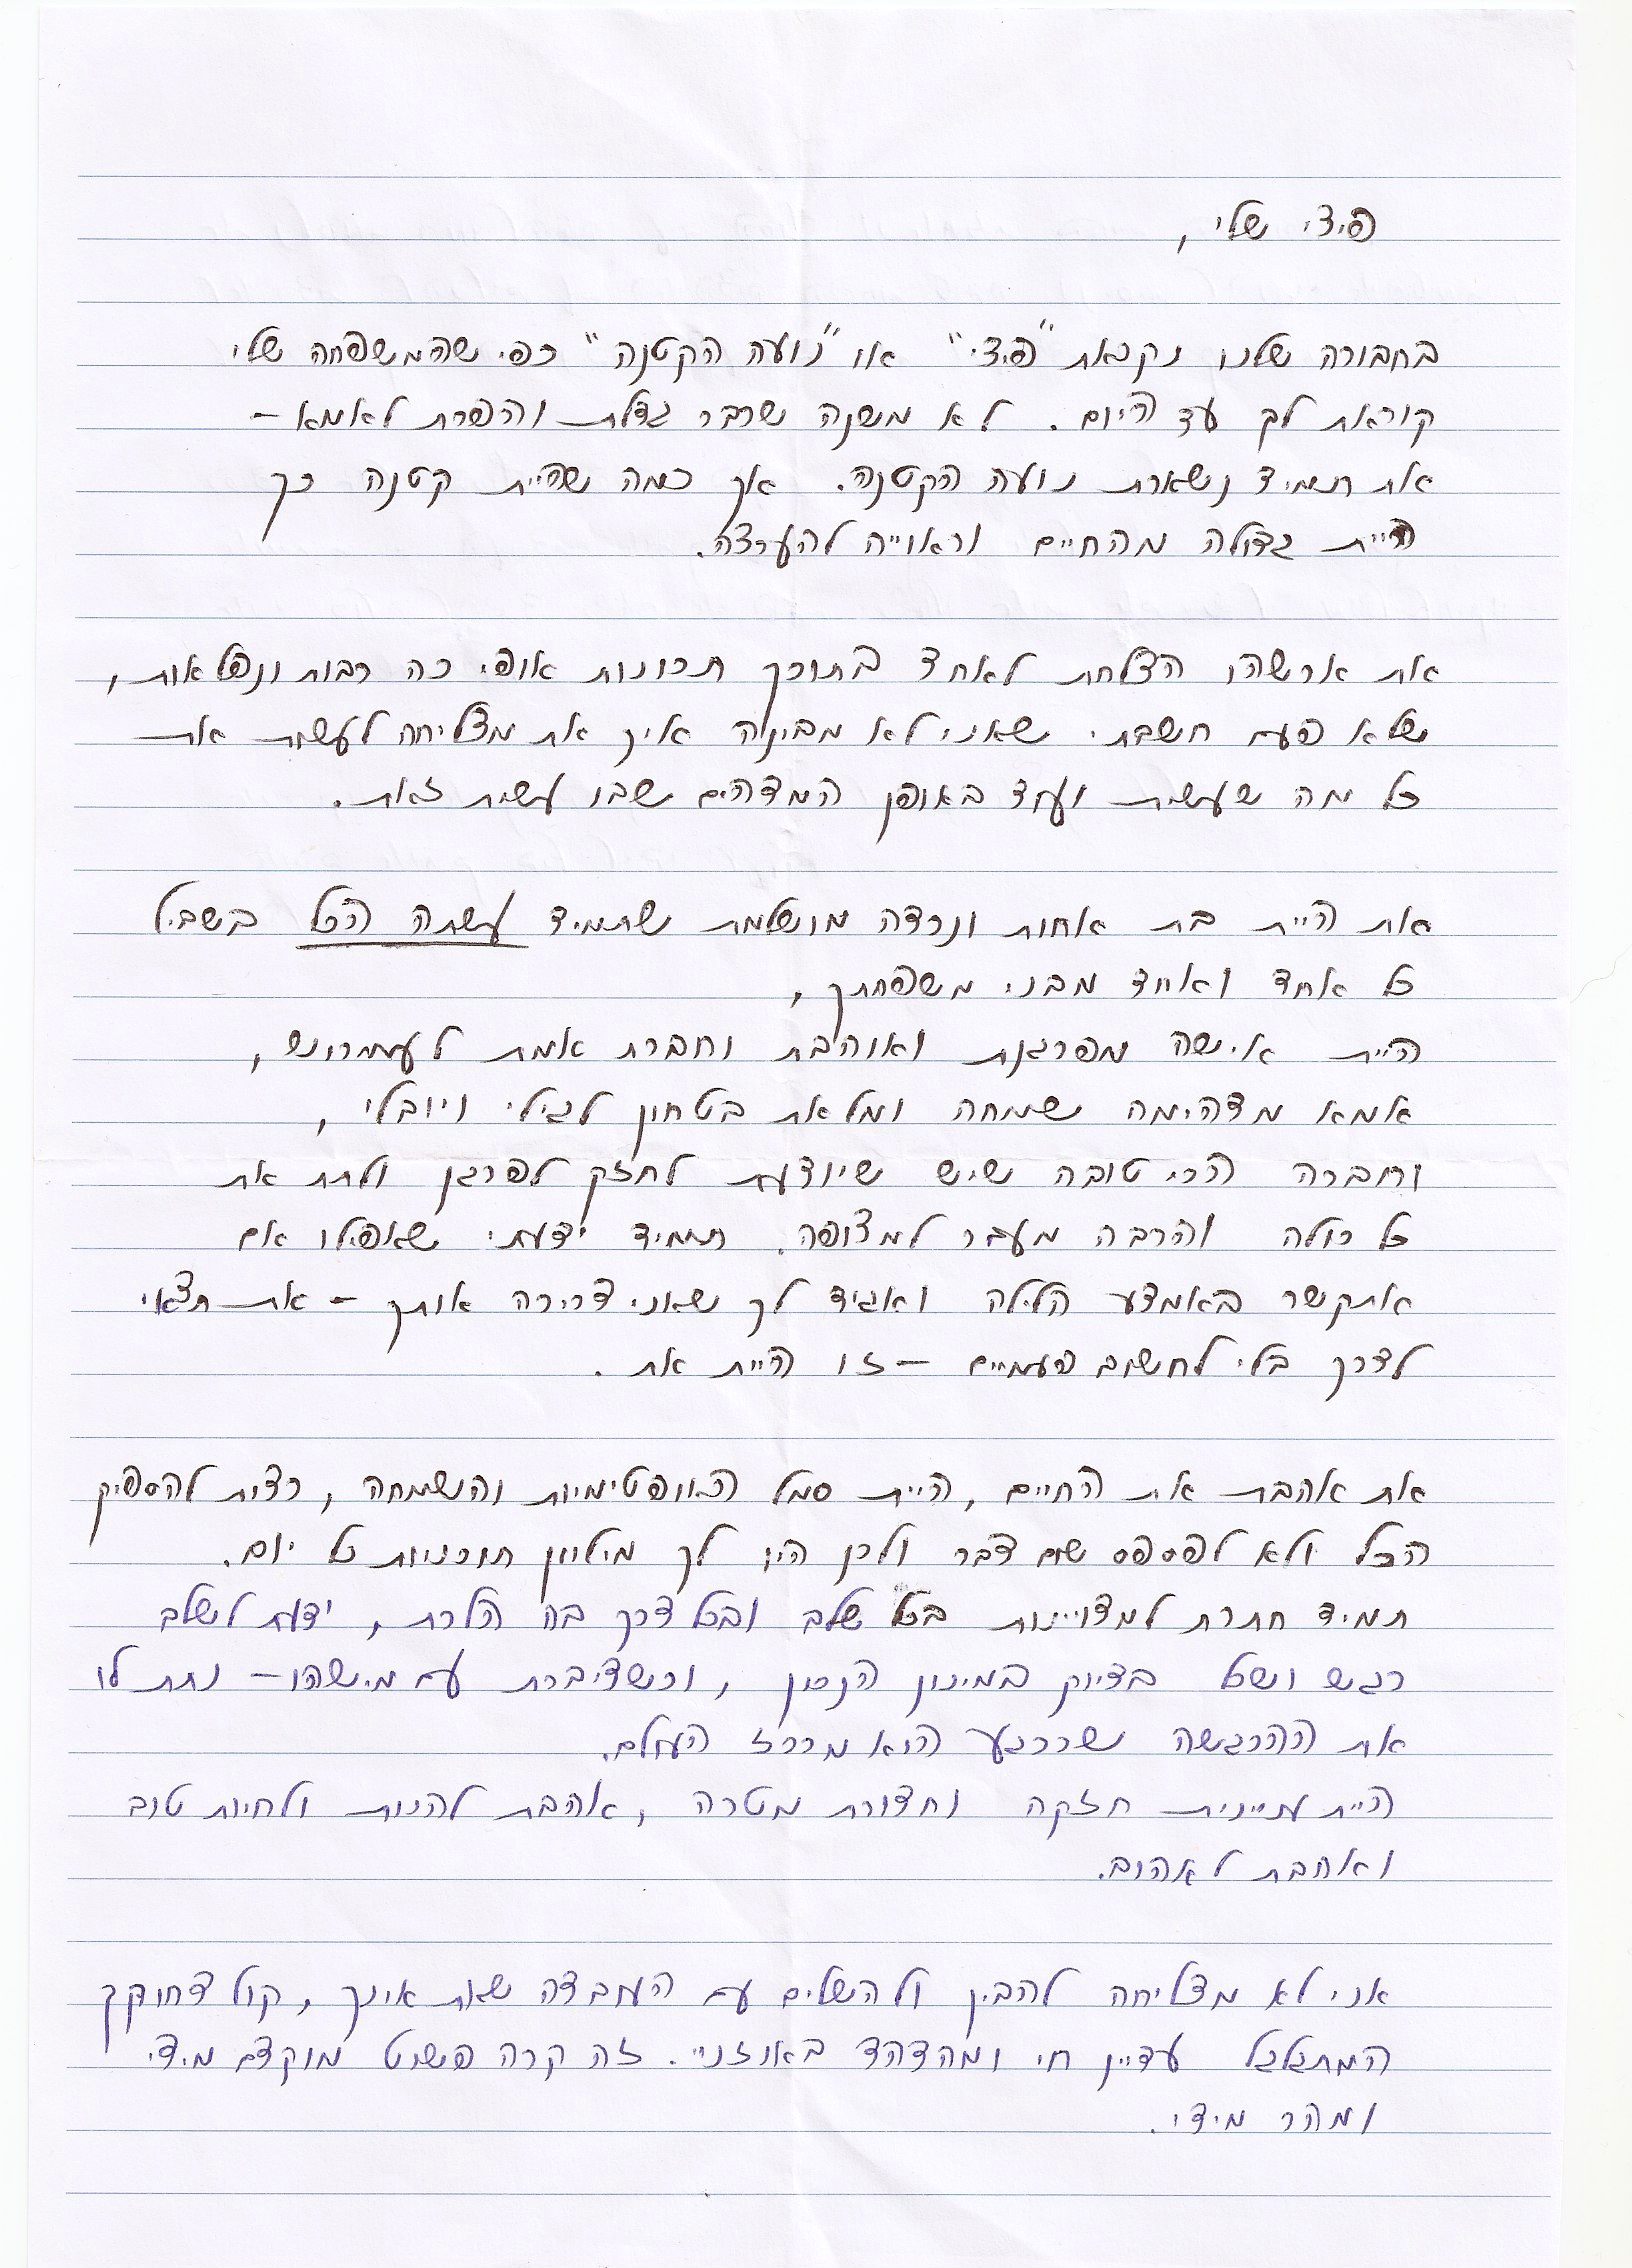 פיצי שלי,
בחבורה שלנו נקראת "פיצי" או "נועה הקטנה" כפי שהמשפחה שלי
קוראת לך עד היום. לא משנה שכבר גדלת והפכת לאמא -
את תמיד נשארת נועה הקטנה. אך כמה שהיית קטנה כך
היית גדולה מהחיים וראוייה להערצה.
את איכשהו הצלחת לאחד בתוכך תכונות אופי כה רבות ונפלאות,
שלא פעם חשבתי שאני לא מבינה איך את מצליחה לעשות את
כל מה שעשית ועוד באופן המדהים שבו עשית זאת.
את היית בת אחות ונכדה מושלמת שתמיד עשתה הכל בשביל
כל אחד ואחד מבני משפחתך,
היית אישה מפרגנת ואוהבת וחברת אמת לעמרונש,
אמא מדהימה שמחה ומלאת בטחון לגילי ויובלי,
וחברה הכי טובה שיש שיודעת לחזק לפרגן ולתת את
כל כולה והרבה מעבר למצופה. תמיד ידעתי שאפילו אם
אתקשר באמצע הלילה ואגיד לך שאני צריכה אותך - את תצאי
לדרך בלי לחשוב פעמיים - זו היית את.
את אהבת את החיים, היית סמל האופטימיות והשמחה, רצית להספיק
הכל ולא לפספס שום דבר ולכן היו לך מיליון תוכניות כל יום.
תמיד חתרת למצויינות בכל שלב ובכל דרך בה הלכת, ידעת לשלב
רגש ושכל בדיוק במינון הנכון, וכשדיברת עם מישהו - נתת לו
את ההרגשה שכרגע הוא מרכז העולם.
היית עניינית חזקה וחדורת מטרה, אהבת להנות ולחיות טוב
ואהבת לאהוב.
אני לא מצליחה להבין ולהשלים עם העובדה שאת אינך, קול צחוקך
המתגלגל עדיין חי ומהדהד באוזניי. זה קרה פשוט מוקדם מידי
ומהר מידי.